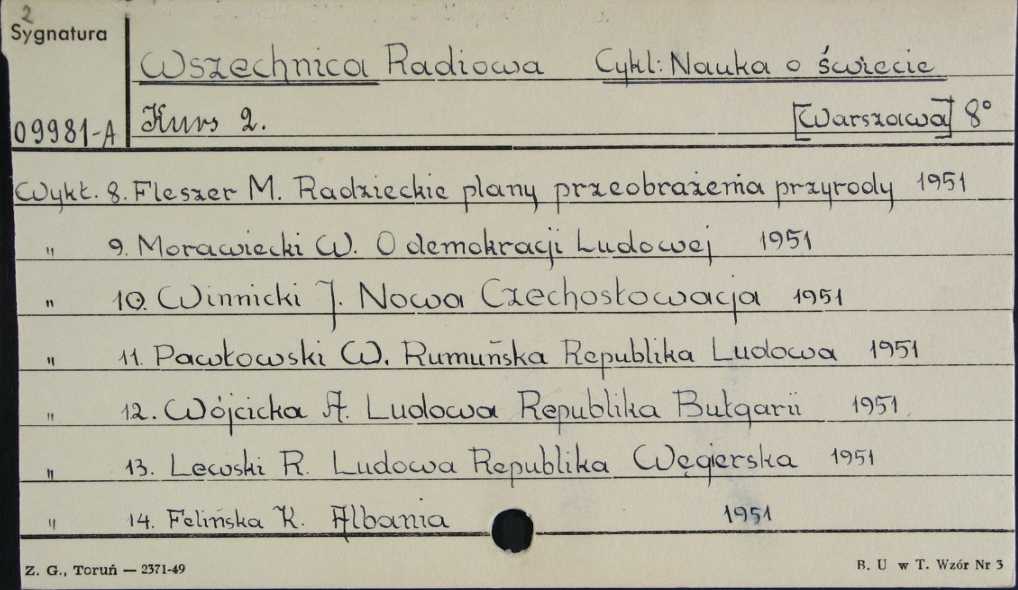 2
Sygnatura
Wszechnica Radiowa Cykl: Nauka o świecie
09981-A Kurs 2. [Warszawa] 8°
Wykł. 8. Fleszer M. Radzieckie plany przeobrażenia przyrody 1951
" 9. Morawiecki W. O demokracji Ludowej 1951
" 10. Winnicki J. Nowa Czechosłowacja 1951
" 11. Pawłowski W. Rumuńska Republika Ludowa 1951
" 12. Wójcicka A. Ludowa Republika Bułgarii 1951
" 13. Lewski R. Ludowa Republika Węgierska 1951
" 14. Felińska K. Albania 1951
Z. G., Toruń — 2371-49 B. U w T. Wzór Nr 3